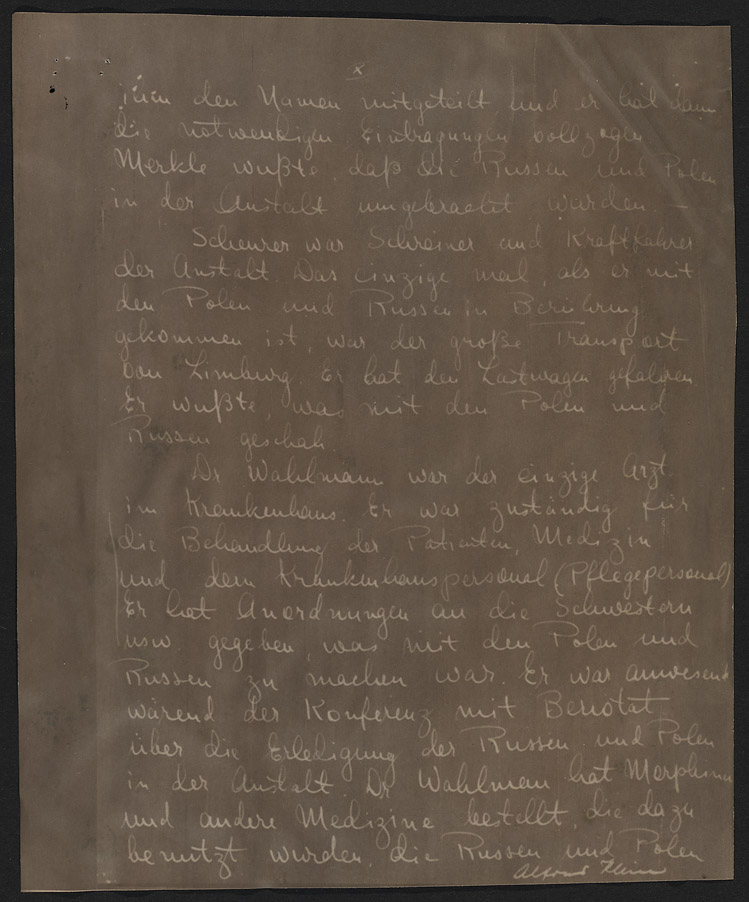 x
ihm den Namen mitgeteilt und er hat dann
die notwendigen Eintragungen vollzogen
Merkle wußte, daß die Russen und Polen
in der Anstalt umgebracht wurden. —
Scheurer war Schreiner und Kraftfahrer
der Anstalt. Das einzige mal, als er mit
den Polen und Russen in Berührung
gekommen ist, war der große Transport
von Limburg. Er hat den Lastwagen gefahren
Er wußte, was mit den Polen und
Russen geschah.
Dr Wahlmann war der einzige Arzt
im Krankenhaus. Er war zuständig für
die Behandlung der Patienten, Medizin
und dem Krankenhauspersonal (Pflegepersonal)
Er hat Anordnungen an die Schwestern
usw. gegeben, was mit den Polen und
Russen zu machen war. Er war anwesend
wärend der Konferenz mit Bernotat
über die Erledigung der Russen und Polen
in der Anstalt. Dr Wahlman hat Morphium
und andere Medizine bestellt, die dazu
benutzt wurden, die Russen und Polen
Alfons Klein